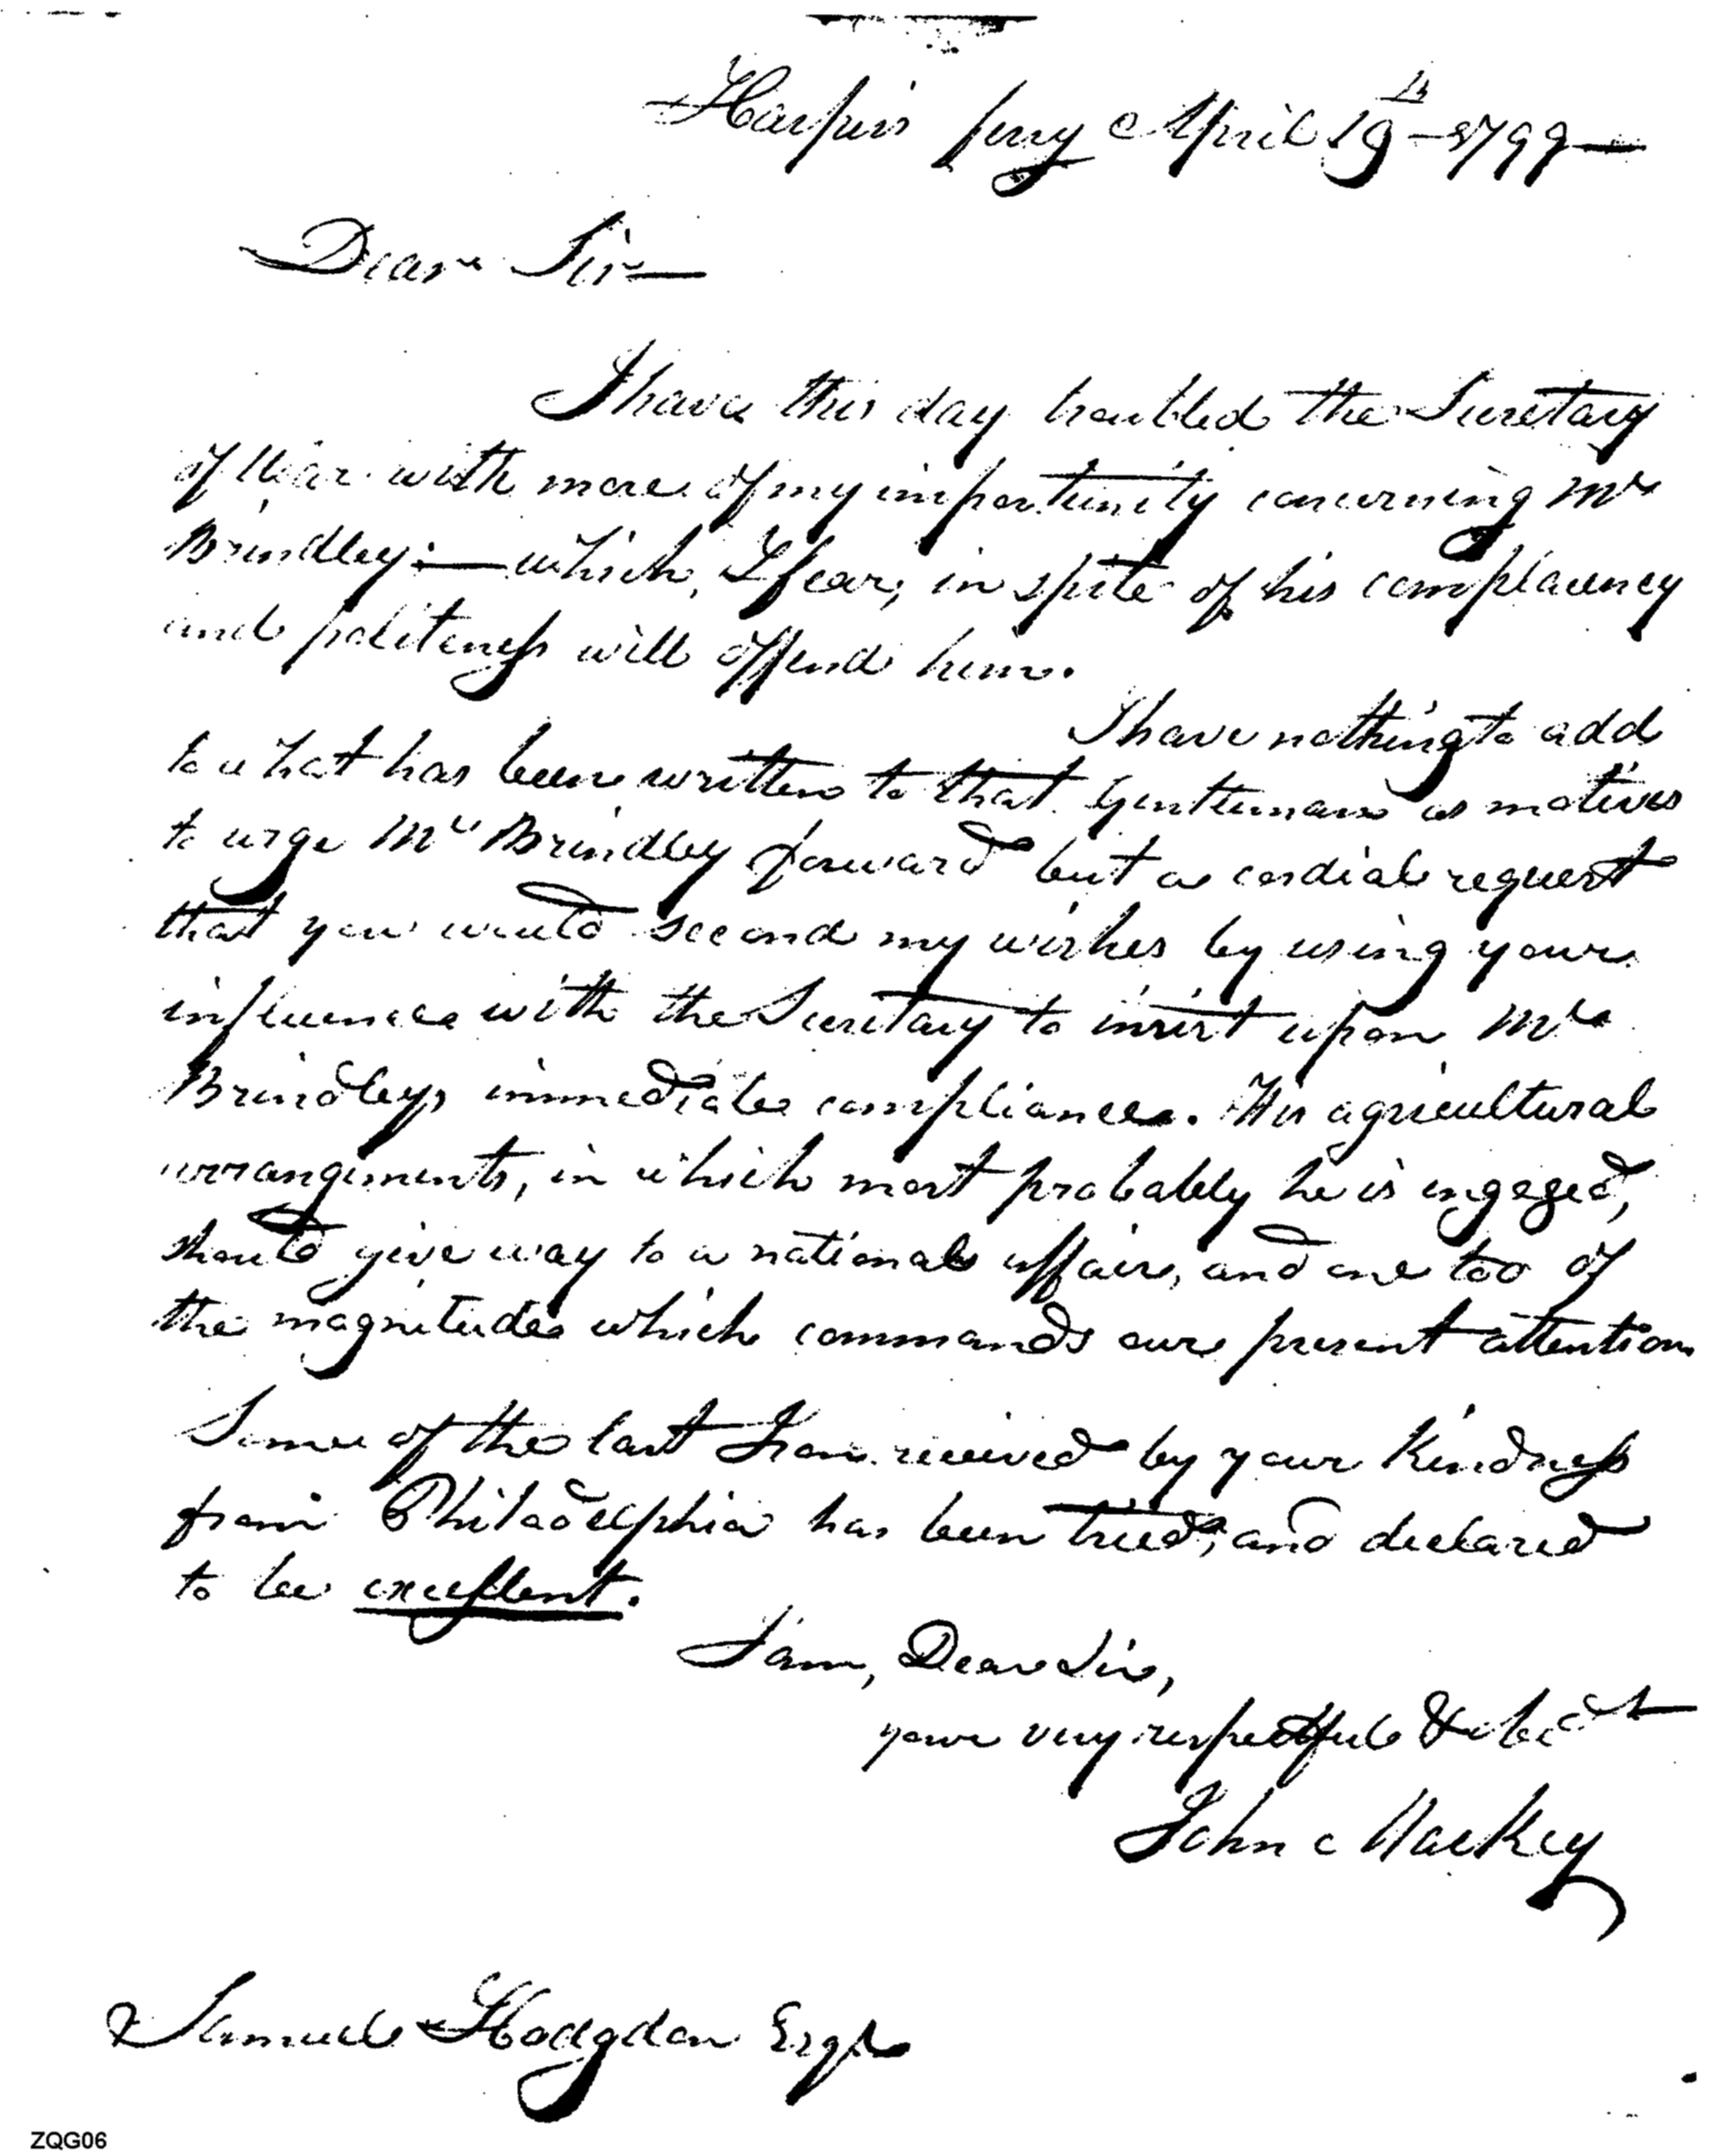 Harper's ferry April 19th 1799
Dear Sir
I have this day troubled the Secretary
of War with more of my importunity concerning Mr
Brindley; — which, I fear, in spite of his complacency
and politeness will offend him.
I have nothing to add
to what has been written to that Gentleman as motives
to urge Mr Brindley forward but a cordial request
that you would second my wishes by using your
influence with the Secretary to insist upon Mr
Brindleys immediate compliance. His agricultural
arrangements, in which most probably he is engaged,
should give way to a national affair, and one too of
the magnitude which commands our present attention
Some of the last Iron received by your Kindness
from Philadelphia has been tried, and declared
to be excellent.
I am, Dear Sir,
your very respectful & obedt
John Mackey
Samuel Hodgdon Esqr
ZQG06